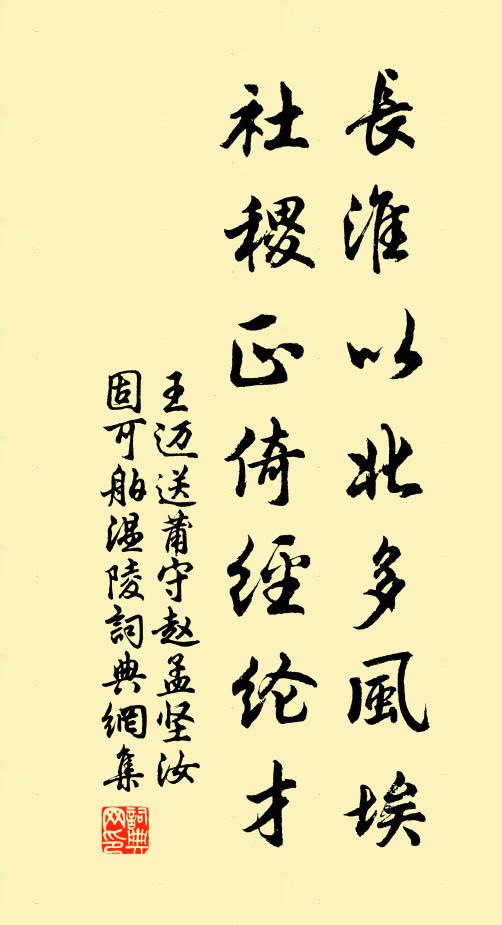 長淮以北多風埃
社稷正倚經纶才
王迈送莆守赵孟坚汝
固可舶温陵詞典網集
詞典网印